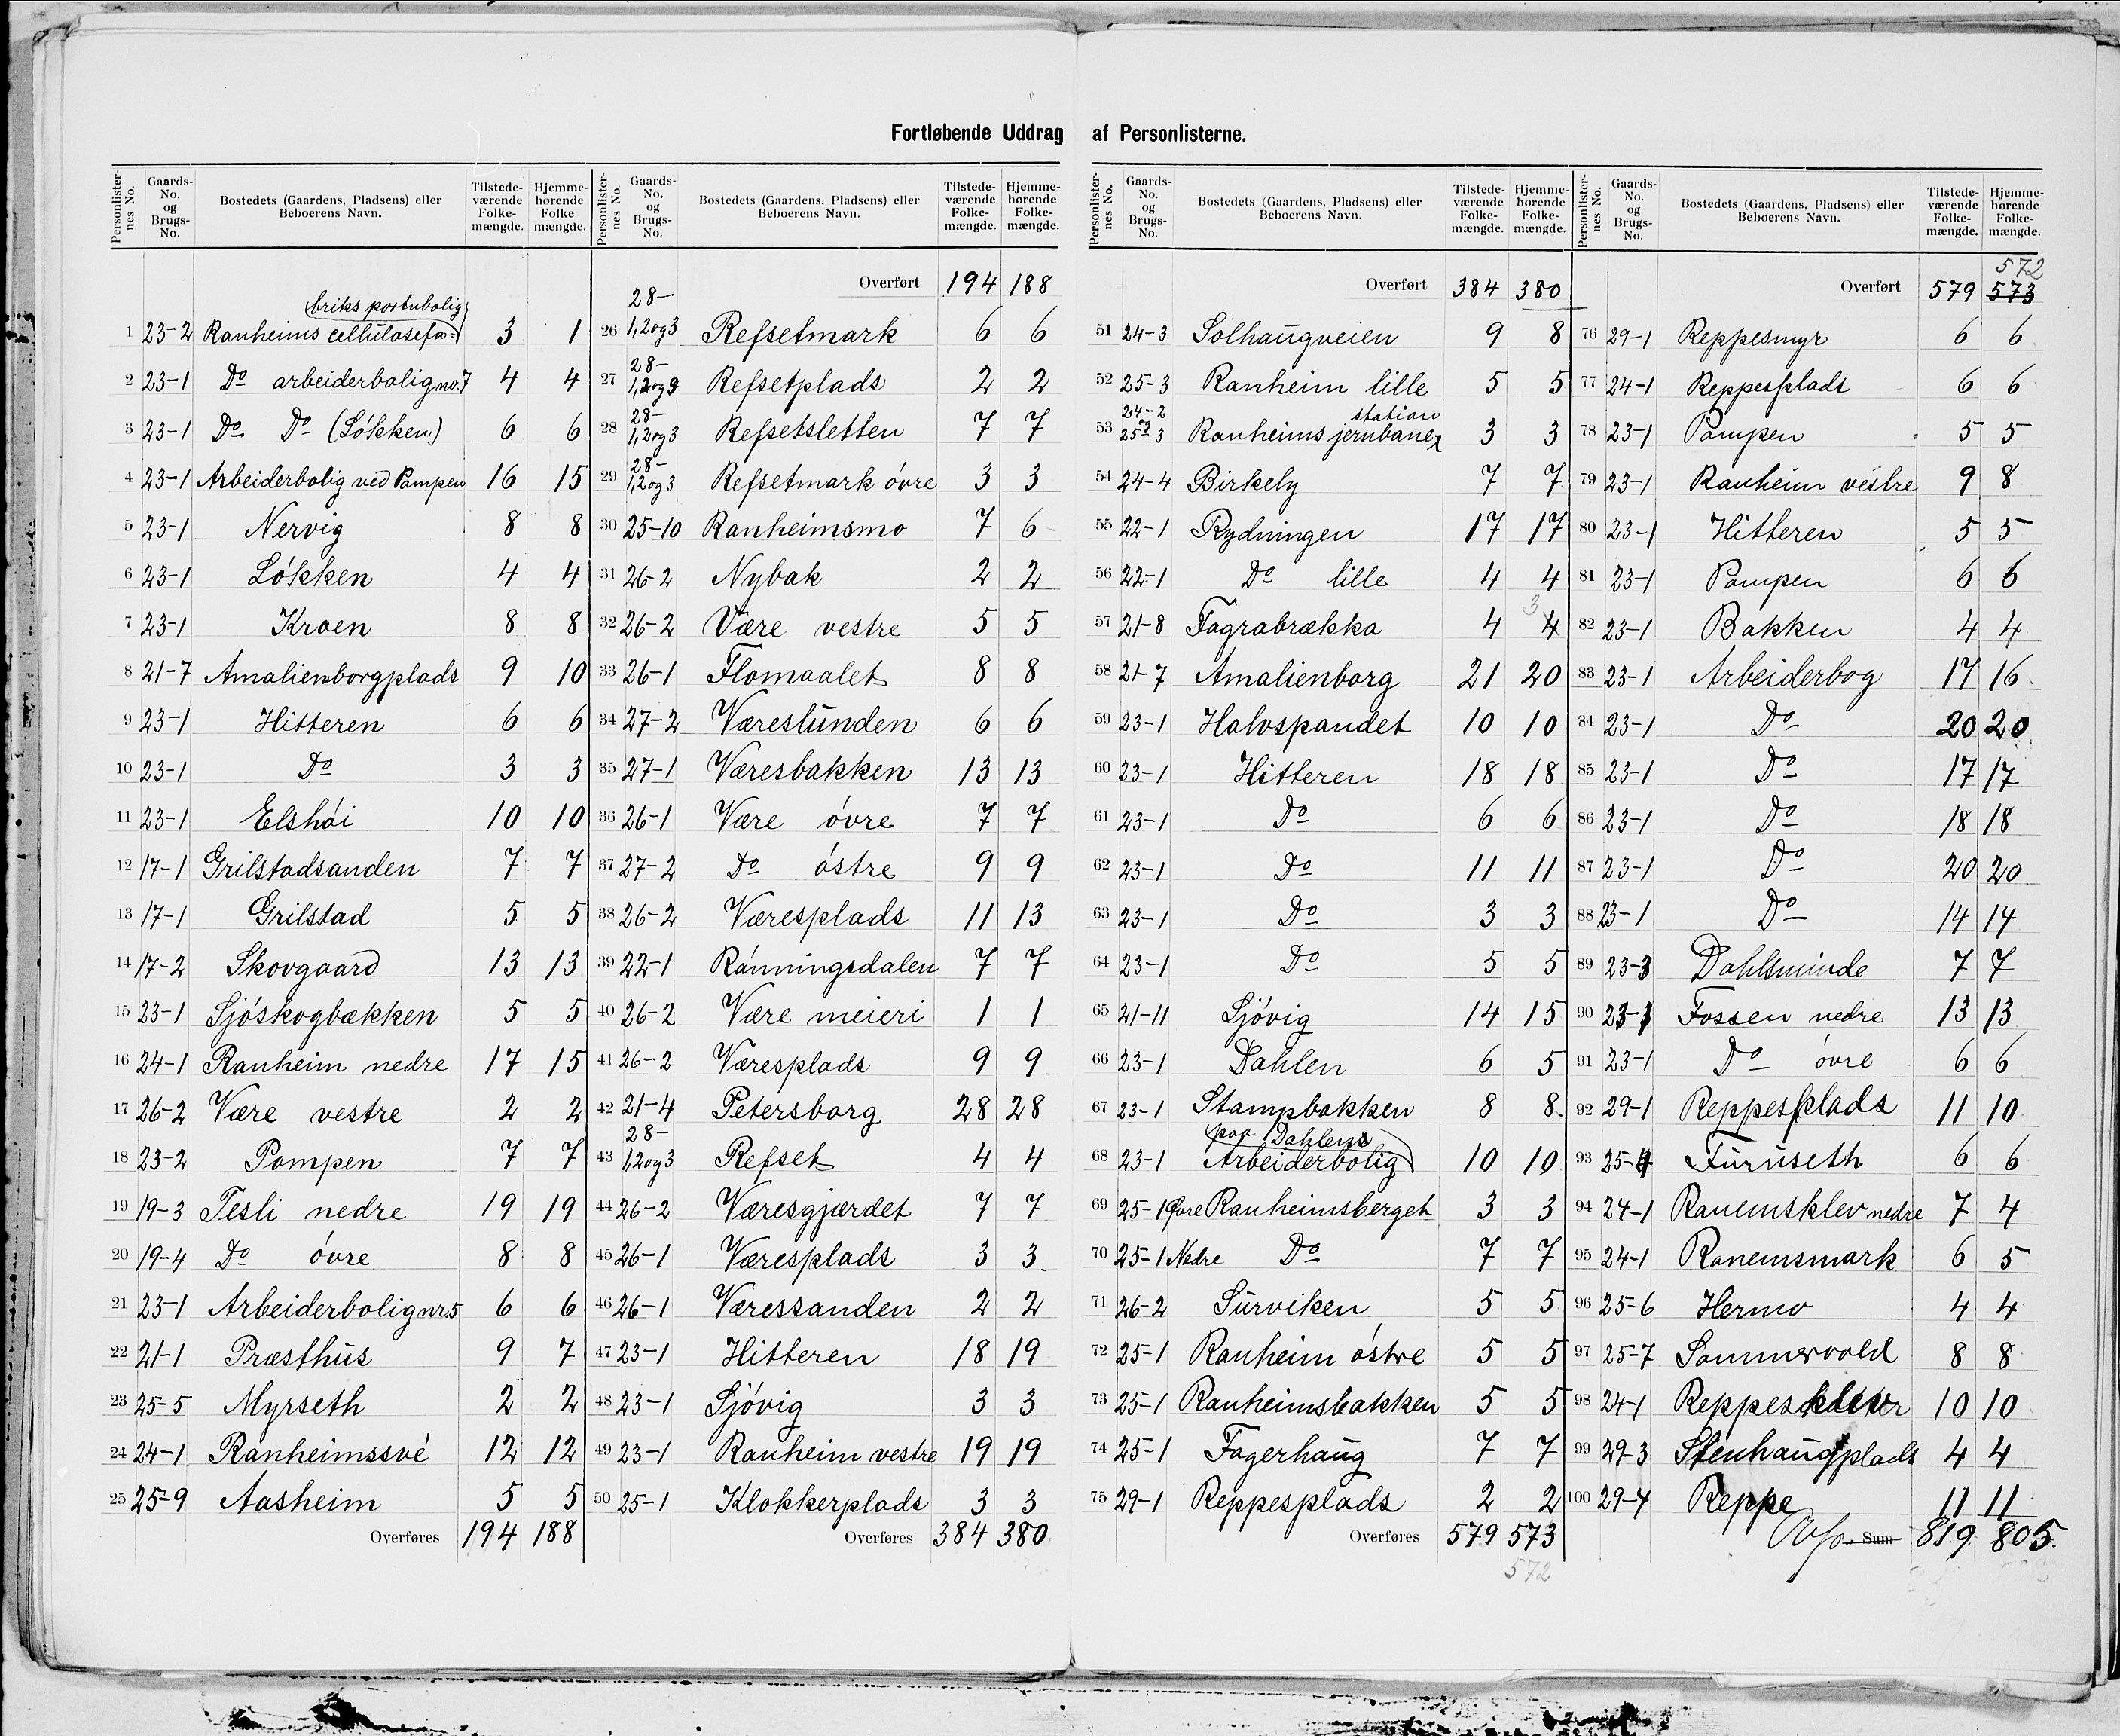 Fortløbende Uddrag af Personlisterne.
Personlister-nes No. | Gaards-No. og Brugs-No. | Bostedets (Gaardens, Pladsens) eller Beboerens Navn. | Tilstede-værende Folke-mængde. | Hjemme-hørende Folke mængde.
briks portubolig
1 23-2 Ranheims cellulosefa: 3 1
2 23-1 Do arbeiderbolig no. 7 4 4
3 23-1 Do Do (Løkken) 6 6
4 23-1 Arbeiderbolig ved Pampen 16 15
5 23-1 Nervig 8 8
6 23-1 Løkken 4 4
7 23-1 Kroen 8 8
8 21-7 Amalienborgplads 9 10
9 23-1 Hitteren 6 6
10 23-1 Do 3 3
11 23-1 Elshøi 10 10
12 17-1 Grilstadsanden 7 7
13 17-1 Grilstad 5 5
14 17-2 Skovgaard 13 13
15 23-1 Sjøskogbækken 5 5
16 24-1 Ranheim nedre 17 15
17 26-2 Være vestre 2 2
18 23-2 Pampen 7 7
19 19-3 Tesli nedre 19 19
20 19-4 Do øvre 8 8
21 23-1 Arbeiderbolig nr. 5 6 6
22 21-1 Præsthus 9 7
23 25-5 Myrseth 2 2
24 24-1 Ranheimssvé 12 12
25 25-9 Aasheim 5 5
Overføres 194 188
Personlister-nes No. | Gaards-No. og Brugs-No. | Bostedets (Gaardens, Pladsens) eller Beboerens Navn. | Tilstede-værende Folke-mængde. | Hjemme-hørende Folke-mængde.
Overført 194 188
26 28-1,2og3 Refsetmark 6 6
27 28-1,2og3 Refsetplads 2 2
28 28-1,2og3 Refsetsletten 7 7
29 28-1,2og3 Refsetmark øvre 3 3
30 25-10 Ranheimsmo 7 6
31 26-2 Nybak 2 2
32 26-2 Være vestre 5 5
33 26-1 Flomaalet 8 8
34 27-2 Væreslunden 6 6
35 27-1 Væresbakken 13 13
36 26-1 Være øvre 7 7
37 27-2 Do østre 9 9
38 26-2 Væresplads 11 13
39 22-1 Rønningsdalen 7 7
40 26-2 Være meieri 1 1
41 26-2 Væresplads 9 9
42 21-4 Petersborg 28 28
43 28-1,2og3 Refset 4 4
44 26-2 Væresgjærdet 7 7
45 26-1 Væresplads 3 3
46 26-1 Væressanden 2 2
47 23-1 Hitteren 18 19
48 23-1 Sjøvig 3 3
49 23-1 Ranheim vestre 19 19
50 25-1 Klokkerplads 3 3
Overføres 384 380
Personlister-nes No. | Gaards-No. og Brugs-No. | Bostedets (Gaardens, Pladsens) eller Beboerens Navn. | Tilstede-værende Folke-mængde. | Hjemme-hørende Folke-mængde.
Overført 384 380
51 24-3 Solhaugveien 9 8
52 25-3 Ranheim lille 5 5
53 24-2 og 25-3 Ranheims jernbane station 3 3
54 24-4 Birkely 7 7
55 22-1 Rydningen 17 17
56 22-1 Do lille 4 4
57 21-8 Fagrabrækka 4 4 3
58 21-7 Amalienborg 21 20
59 23-1 Halvspandet 10 10
60 23-1 Hitteren 18 18
61 23-1 Do 6 6
62 23-1 Do 11 11
63 23-1 Do 3 3
64 23-1 Do 5 5
65 21-11 Sjøvig 14 15
66 23-1 Dahlen 6 5
67 23-1 Stampbakken 8 8
paa Dahlens
68 23-1 Arbeiderbolig 10 10
69 25-1 Øvre Ranheimsberget 3 3
70 25-1 Nedre Do 7 7
71 26-2 Surviken 5 5
72 25-1 Ranheim østre 5 5
73 25-1 Ranheimsbakken 5 5
74 25-1 Fagerhaug 7 7
75 29-1 Reppesplads 2 2
Overføres 579 573
572
Personlister-nes No. | Gaards-No. og Brugs-No. | Bostedets (Gaardens, Pladsens) eller Beboerens Navn. | Tilstede-værende Folke-mængde. | Hjemme-hørende Folke-mængde.
572
Overført 579 573
76 29-1 Reppesmyr 6 6
77 24-1 Reppesplads 6 6
78 23-1 Pampen 5 5
79 23-1 Ranheim vestre 9 8
80 23-1 Hitteren 5 5
81 23-1 Pampen 6 6
82 23-1 Bakken 4 4
83 23-1 Arbeiderbog 17 16
84 23-1 Do 20 20
85 23-1 Do 17 17
86 23-1 Do 18 18
87 23-1 Do 20 20
88 23-1 Do 14 14
89 23-3 Dahlsminde 7 7
90 23-1 Fossen nedre 13 13
91 23-1 Do øvre 6 6
92 29-1 Reppesplads 11 10
93 25-4 Furuseth 6 6
94 24-1 Ranemsklev nedre 7 4
95 24-1 Ranemsmark 6 5
96 25-6 Hermo 4 4
97 25-7 Sommervold 8 8
98 24-1 10 10
99 29-3 Stenhaugplads 4 4
100 29-4 Reppe 11 11
Sum 819 805